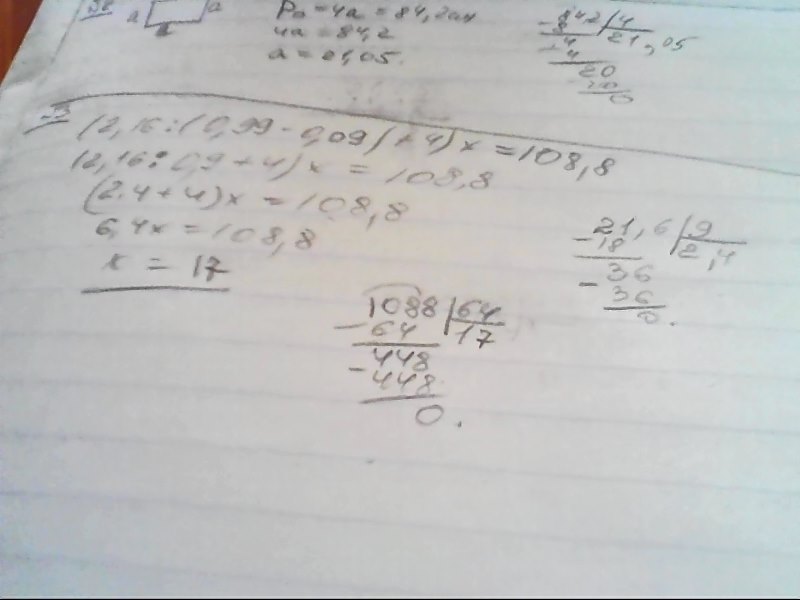 a a
a
P□ = 4a = 84,2
4a = 84,2
a = 21,05.
842 4
21,05
8
4
4
20
20
0
(2,16 : (0,99 - 0,09) + 4) x = 108,8
(2,16 : 0,9 + 4) x = 108,8
(2.4 + 4) x = 108,8
6,4x = 108,8
x = 17
21,6 9
- 18 2,4
36
- 36
0.
1088 64
- 64 17
448
- 448
0.